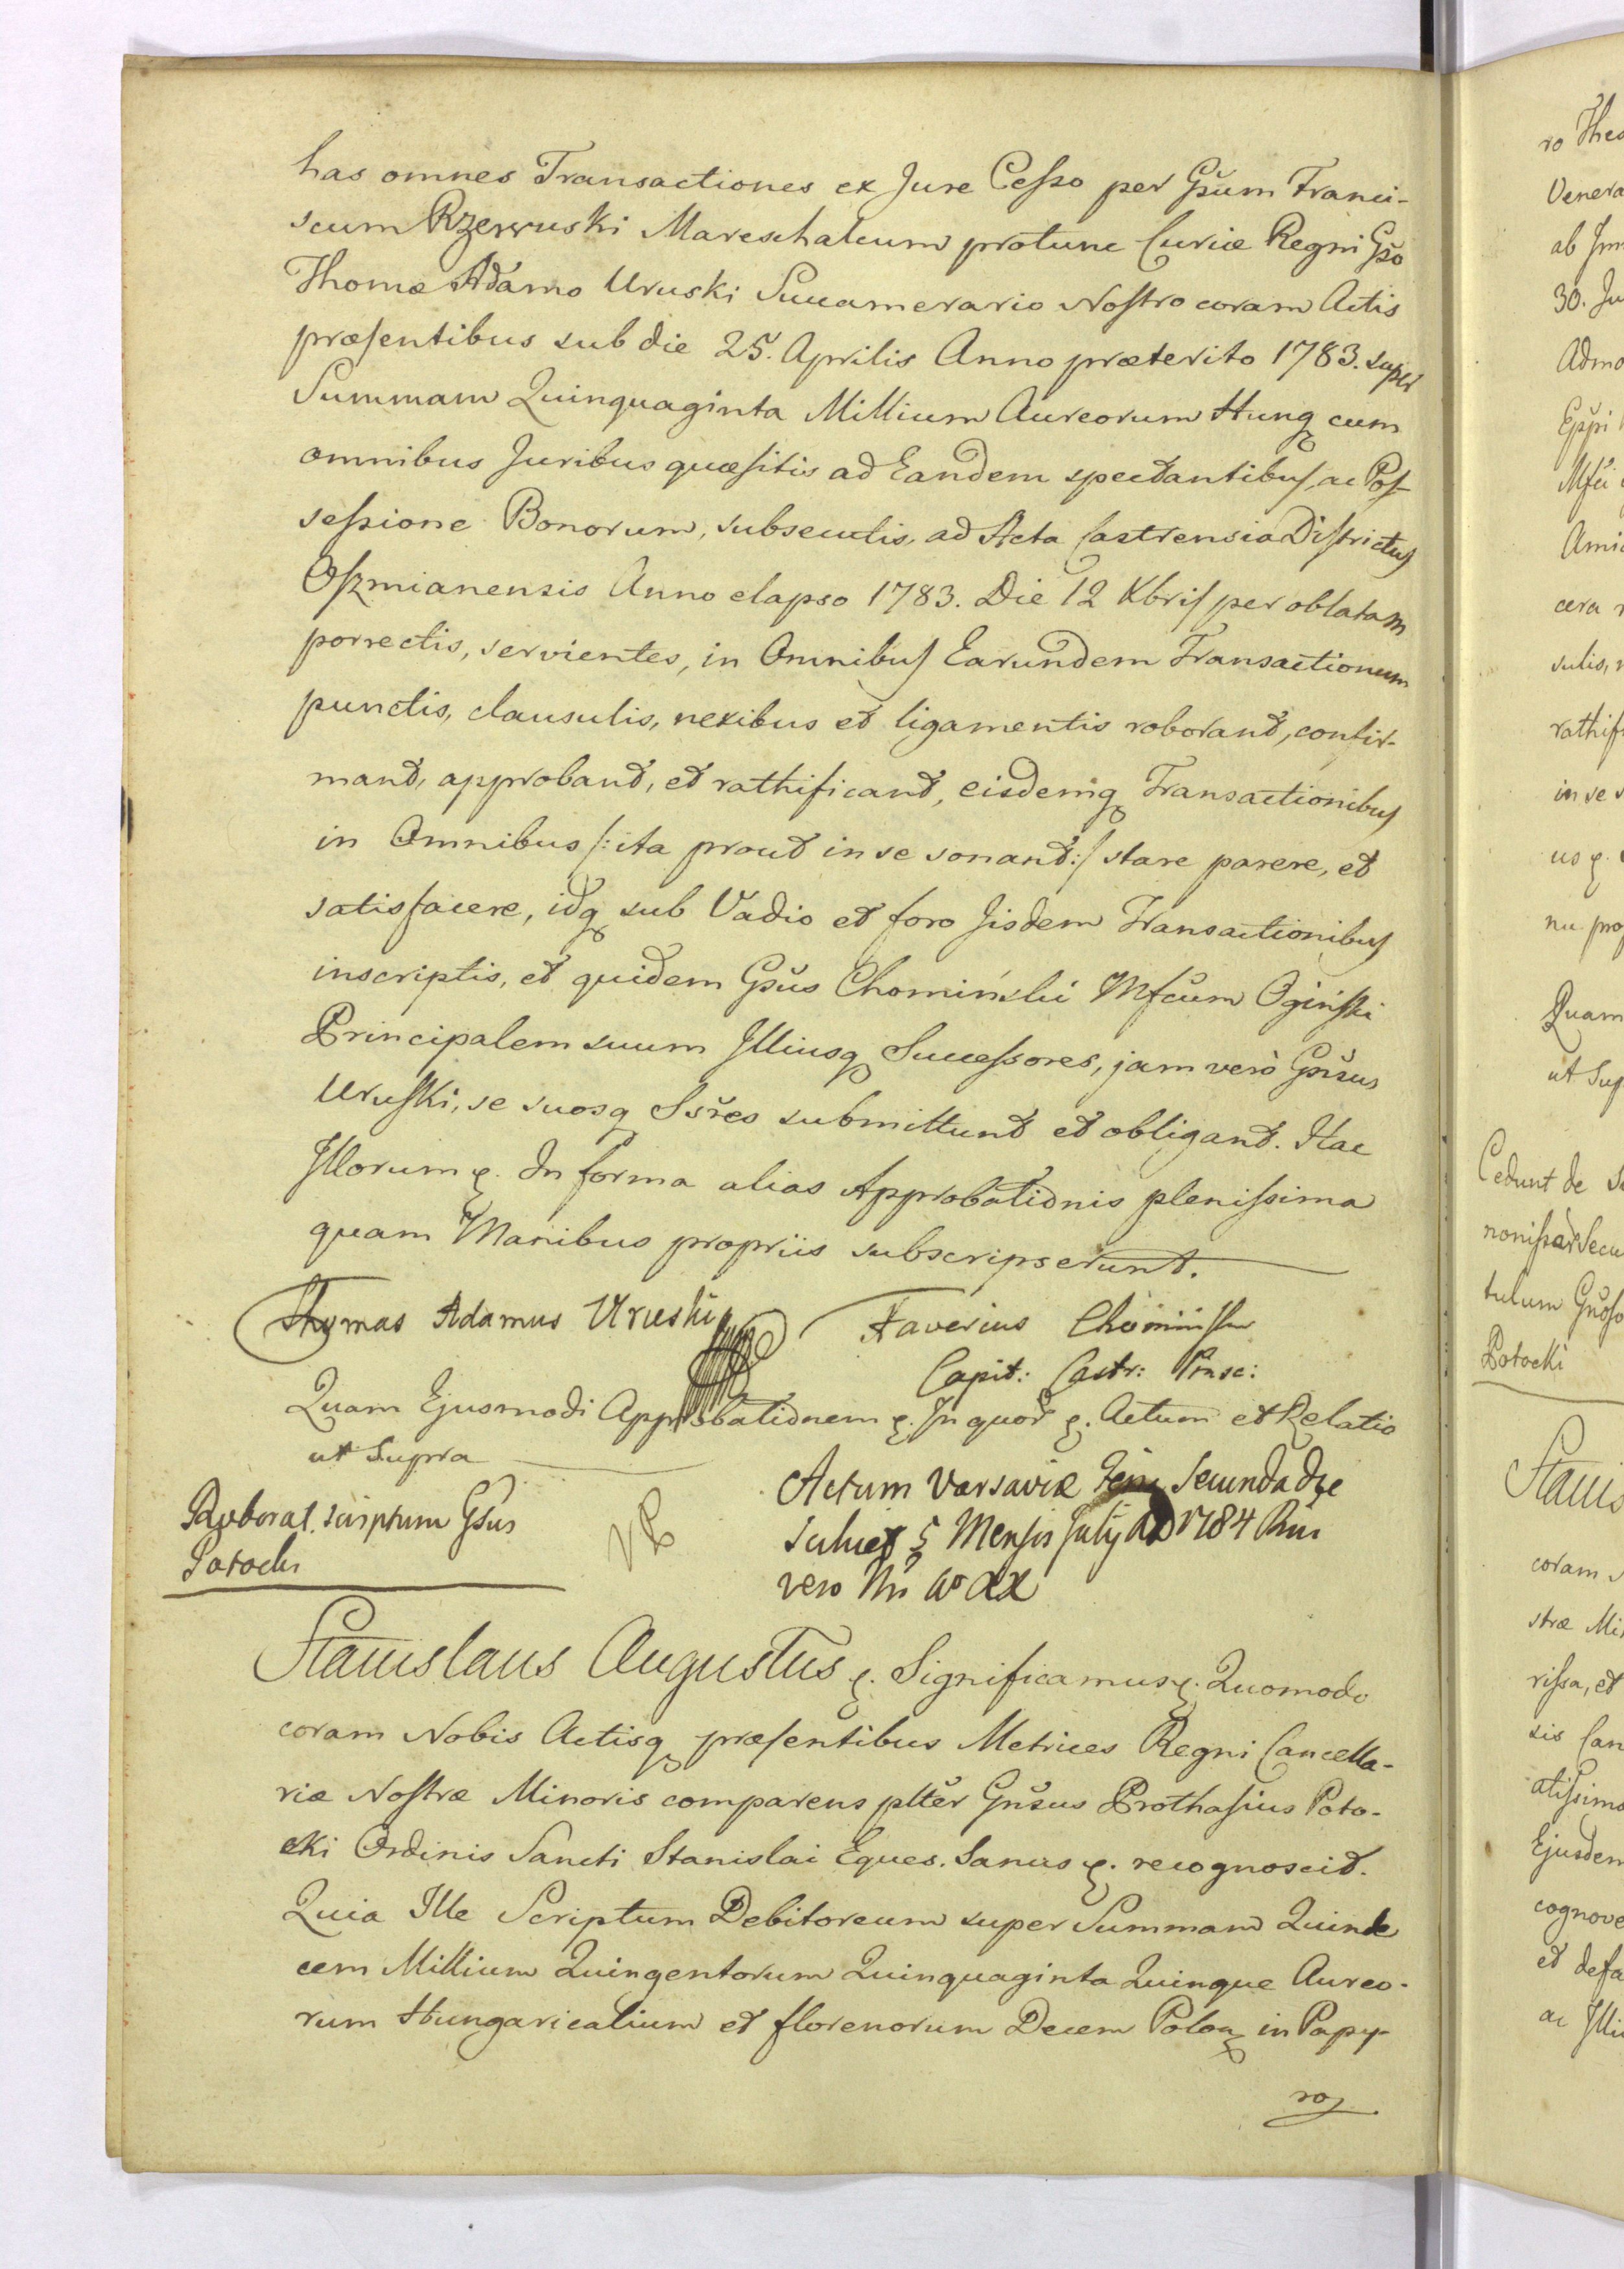 has omnes Transactiones ex Jure Cesso per Gsum Franci-
scum Rzewuski Mareschalcum protunc Curiæ Regni Gso
Thomæ Adamo Uruski Succamerario Nostro coram Actis
præsentibus sub die 25. Aprilis Anno præterito 1783. super
Summam Quinquaginta Millium Aureorum Hung cum
omnibus Juribus quæsitis ad Eandem spectantibus, ac Pos-
sessione Bonorum, subsecutis, ad Acta Castrensia Districtus
Oszmianensis Anno elapso 1783. Die 12 Xbris per oblatam
porrectis, servientes, in Omnibus Earundem Transactionum
punctis, clausulis, nexibus et ligamentis roborant, confir-
mant, approbant, et rathificant, eisdemq Transactionibus
in Omnibus /: ita prout in se sonant :/ stare parere, et
satisfacere, idq sub Vadio et foro Jisdem Transactionibus
inscriptis, et quidem Gsus Chomiński Mfcum Ogiński
Principalem suum Illiusq Successores, jam verò Gnsus
Uruski, se suosq Ssres submittunt et obligant. Hac
Illorum &. In forma alias Approbationis plenissima
quam Manibus propriis subscripserunt.
Thomas Adamus Uruski Xaverius Chomiński
Capit: Castr: Pinsc:
Quam Ejusmodi Approbationem &. In quor &. Actum et Relatio
ut Supra
Roborat. scriptum Gsus
Potocki
Actum Varsaviæ Secunda die
5 Mensis July AD 1784
vero
Stanislaus Augustus &. Significamus &. Quomodo
coram Nobis Actisq præsentibus Metrices Regni Cancella-
riæ Nostræ Minoris comparens plter Gnsus Prothasius Poto-
cki Ordinis Sancti Stanislai Eques. Sanus &. recognoscit.
Quia Ille Scriptum Debitoreum super Summam Quinde
cem Millium Quingentorum Quinquaginta Quinque Aureo-
rum Hungaricalium et florenorum Decem Polon in Papy-
ro
ro
Venera
ab
30. Ju
Admo
Amic
cera
sulis,
rathifi
in se
us &.
nu
Quam
ut Sup
Cedunt de
tulum
Potocki
Stanis
coram
stræ Mi
rissa, et
sis Can
atissimo
Ejusdem
cognove
et defa
ac Illi